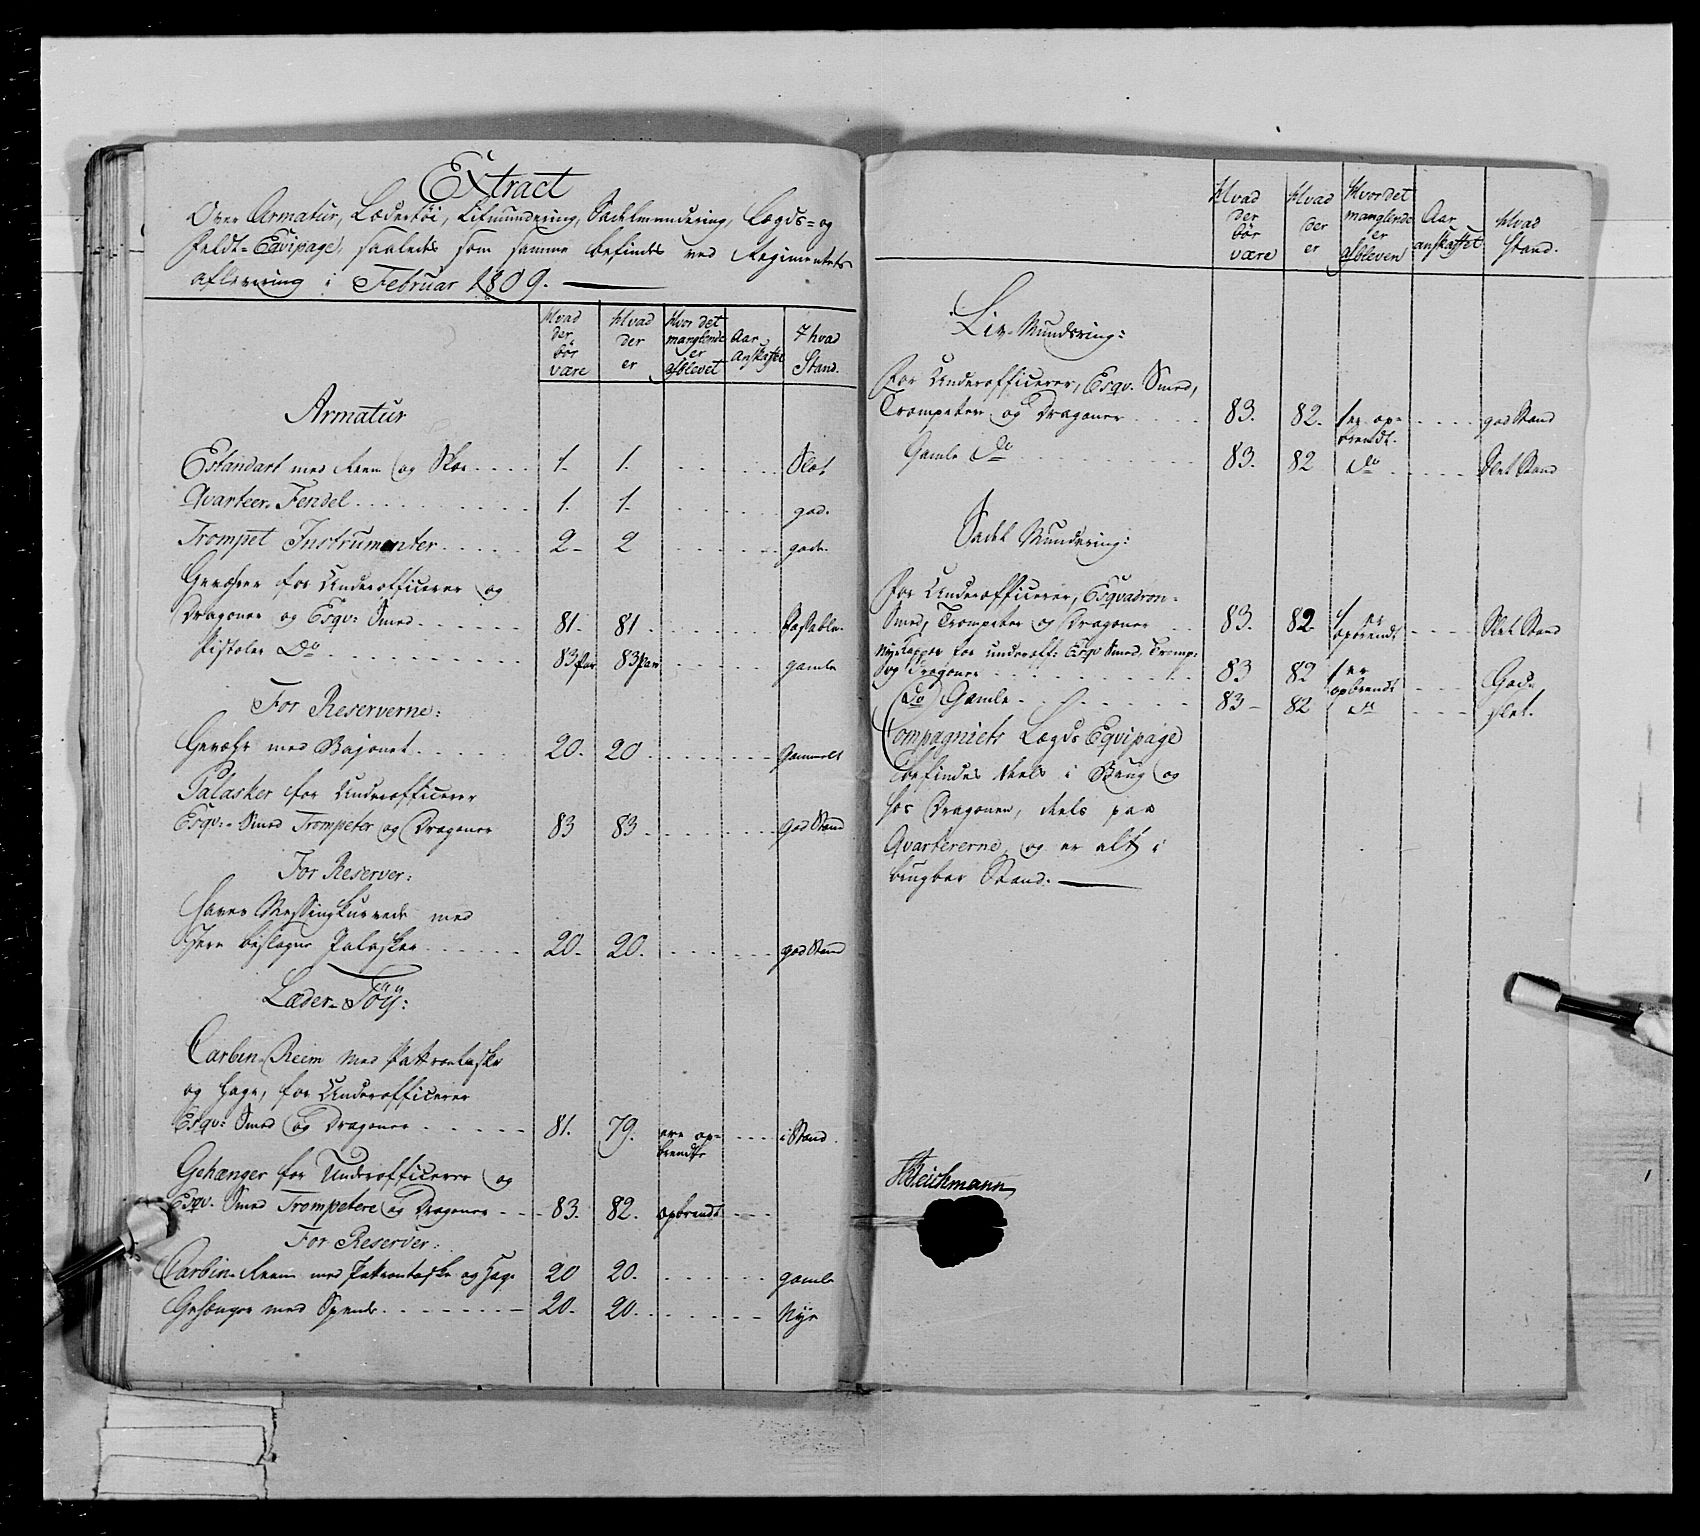 Extract
Over Armatur, Lædertöi, Lifmundering, Sadelmundering, Lægds= og
Feldt=Eqvipage, saaledes som samme befindes ved Regimentets
aflevering i Februar 1809.
Hvad der bör være | Hvad der er | Hvor det manglende er afblevet | Aar anskaffet | I hvad Stand.
Armatur
Estandart med Reem og Skoe 1. 1. Slet
Qvarteer-Fendel 1. 1. god.
Trompet Instrumenter 2 2 gode.
Geværer for Underofficerer og
Dragoner og Esqv: Smed 81. 81. Passable.
Pistoler Do 83 Par 83 Par gamle
For Reserverne:
Geværh med Bajonet 20. 20. Gammelt
Palasker for Underofficerer
Esqv:- Smed Trompeter og Dragoner 83 83 god Stand
For Reserver:
Messing med
Jern beslagne Palasker 20. 20. god Stand
Læder-Töÿ:
Carbin Reem med Patrontaske
og Hage, for Underofficerer
Esqv: Smed og Dragoner 81. 79. ere op=
brendte i Stand.
Gehænger for Underofficerer og
Esqv. Smed Trompetere og Dragoner 83. 82. opbrendt
For Reserver:
Carbin-Reem med Patrontaske og Hage 20 20. gamle
Gehænger med Spende 20. 20. Nye
Hvad der bör være | Hvad der er | Hvor det manglende er afbleven | Aar anskaffet | Hvad Stand.
Liv-Mundering:
For Underofficerer, Esqv. Smed,
Trompeter og Dragoner 83. 82. 1 er op=
brendt. god Stand
Gamle Do 83. 82 Do Slet Stand
Sadel Mundering:
For Underofficerer, Esqvadron-
Smed, Trompeter og Dragoner 83. 82. 1 er
opbrendt Slet Stand
Nye Kapper for underoff: Esqv Smed, Tromp:
og Dragoner 83 82 1 er
opbrendt Gode
Do Gamle 83 82 Do slet.
Compagniets Lægds Eqvipage
befindes deels i Brug og
hos Dragonen, deels paa
Qvartererne, og er alt i
brugbar Stand.
Teichmann